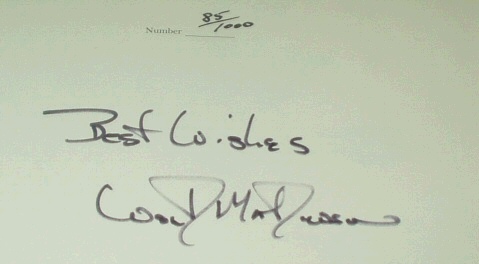 85/1000
Number
Best Wishes